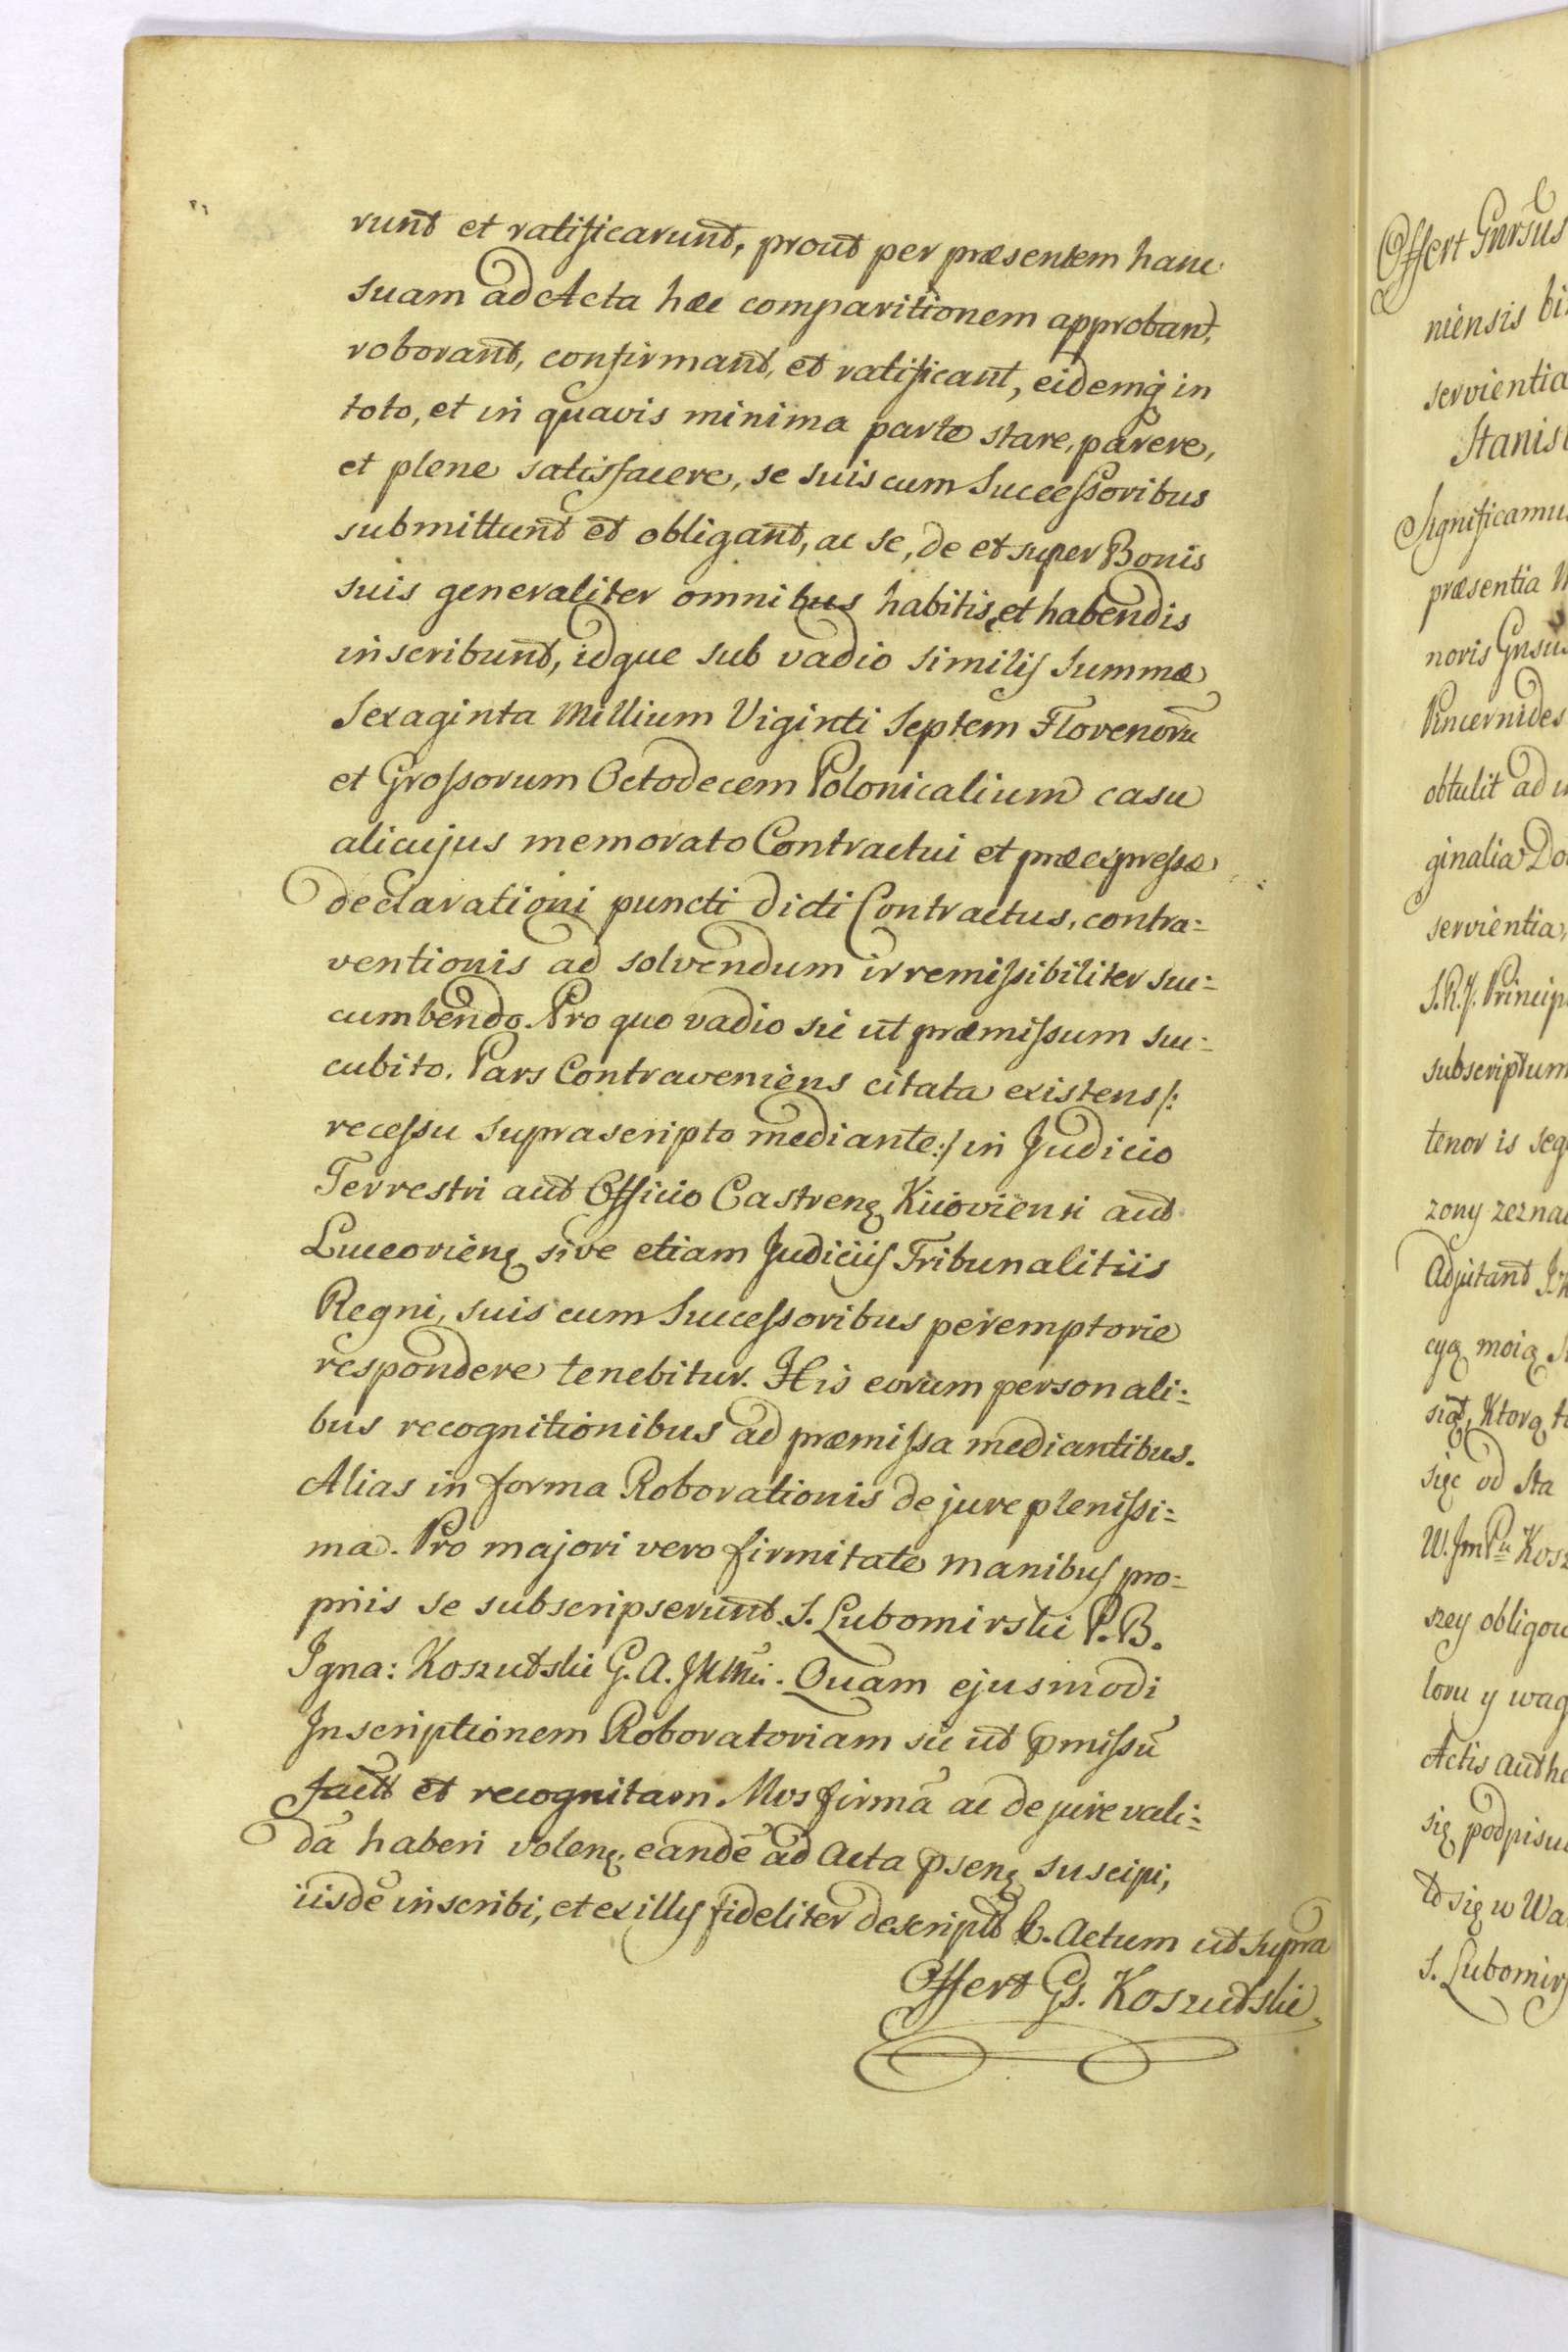 runt et ratificarunt, prout per præsentem hanc
suam ad Acta hæc comparitionem approbant,
roborant, confirmant, et ratificant, eidemq in
toto, et in quavis minima parte stare, parere,
et plene satisfacere, se suis cum Successoribus
submittunt et obligant, ac se, de et super Bonis
suis generaliter omnibus habitis, et habendis
inscribunt, idque sub vadio similis Summæ
Sexaginta Millium Viginti Septem Florenorū
et Grossorum Octodecem Polonicalium casu
alicujus memorato Contractui et præexpressæ
declarationi puncti dicti Contractus, contra=
ventionis ad solvendum irremissibiliter suc=
cumbendo. Pro quo vadio sic ut præmissum suc=
cubito. Pars Contraveniens citata existens /:
recessu suprascripto mediante :/ in Judicio
Terrestri aut Officio Castrenę Kiioviensi aut
Luceorienę sive etiam Judiciis Tribunalitiis
Regni, suis cum Successoribus peremptorie
respondere tenebitur. His eorum personali=
bus recognitionibus ad præmissa mediantibus.
Alias in forma Roborationis de jure plenissi=
ma. Pro majori vero firmitate manibus pro=
priis se subscripserunt. S. Lubomirski P. B.
Igna: Koszutski G. A. JKMci. Quam ejusmodi
Inscriptionem Roboratoriam sic ut pmissū
factā et recognitam. Nos firmā ac de jure vali=
dā haberi volenę. eandē ad Acta psenę suscipi,
iisdē inscribi, et ex illis fideliter descripti &. Actum ut supra
Offert Gs. Koszutski
Offert Gnrsūs
niensis
servientia
Significamus
præsentia
noris Gnsūs
Pincernides
obtulit ad
ginalia
servientia
S. R. J. Princip
subscriptum
tenor is seq
zony zezna
Adjutant
cyą moią
sią, Ktorą
się od Sta
W. Jm Pu Kosz
szey obligow
loru y wag
Actis auth
się podpisu
to się w Wa
S. Lubomirs